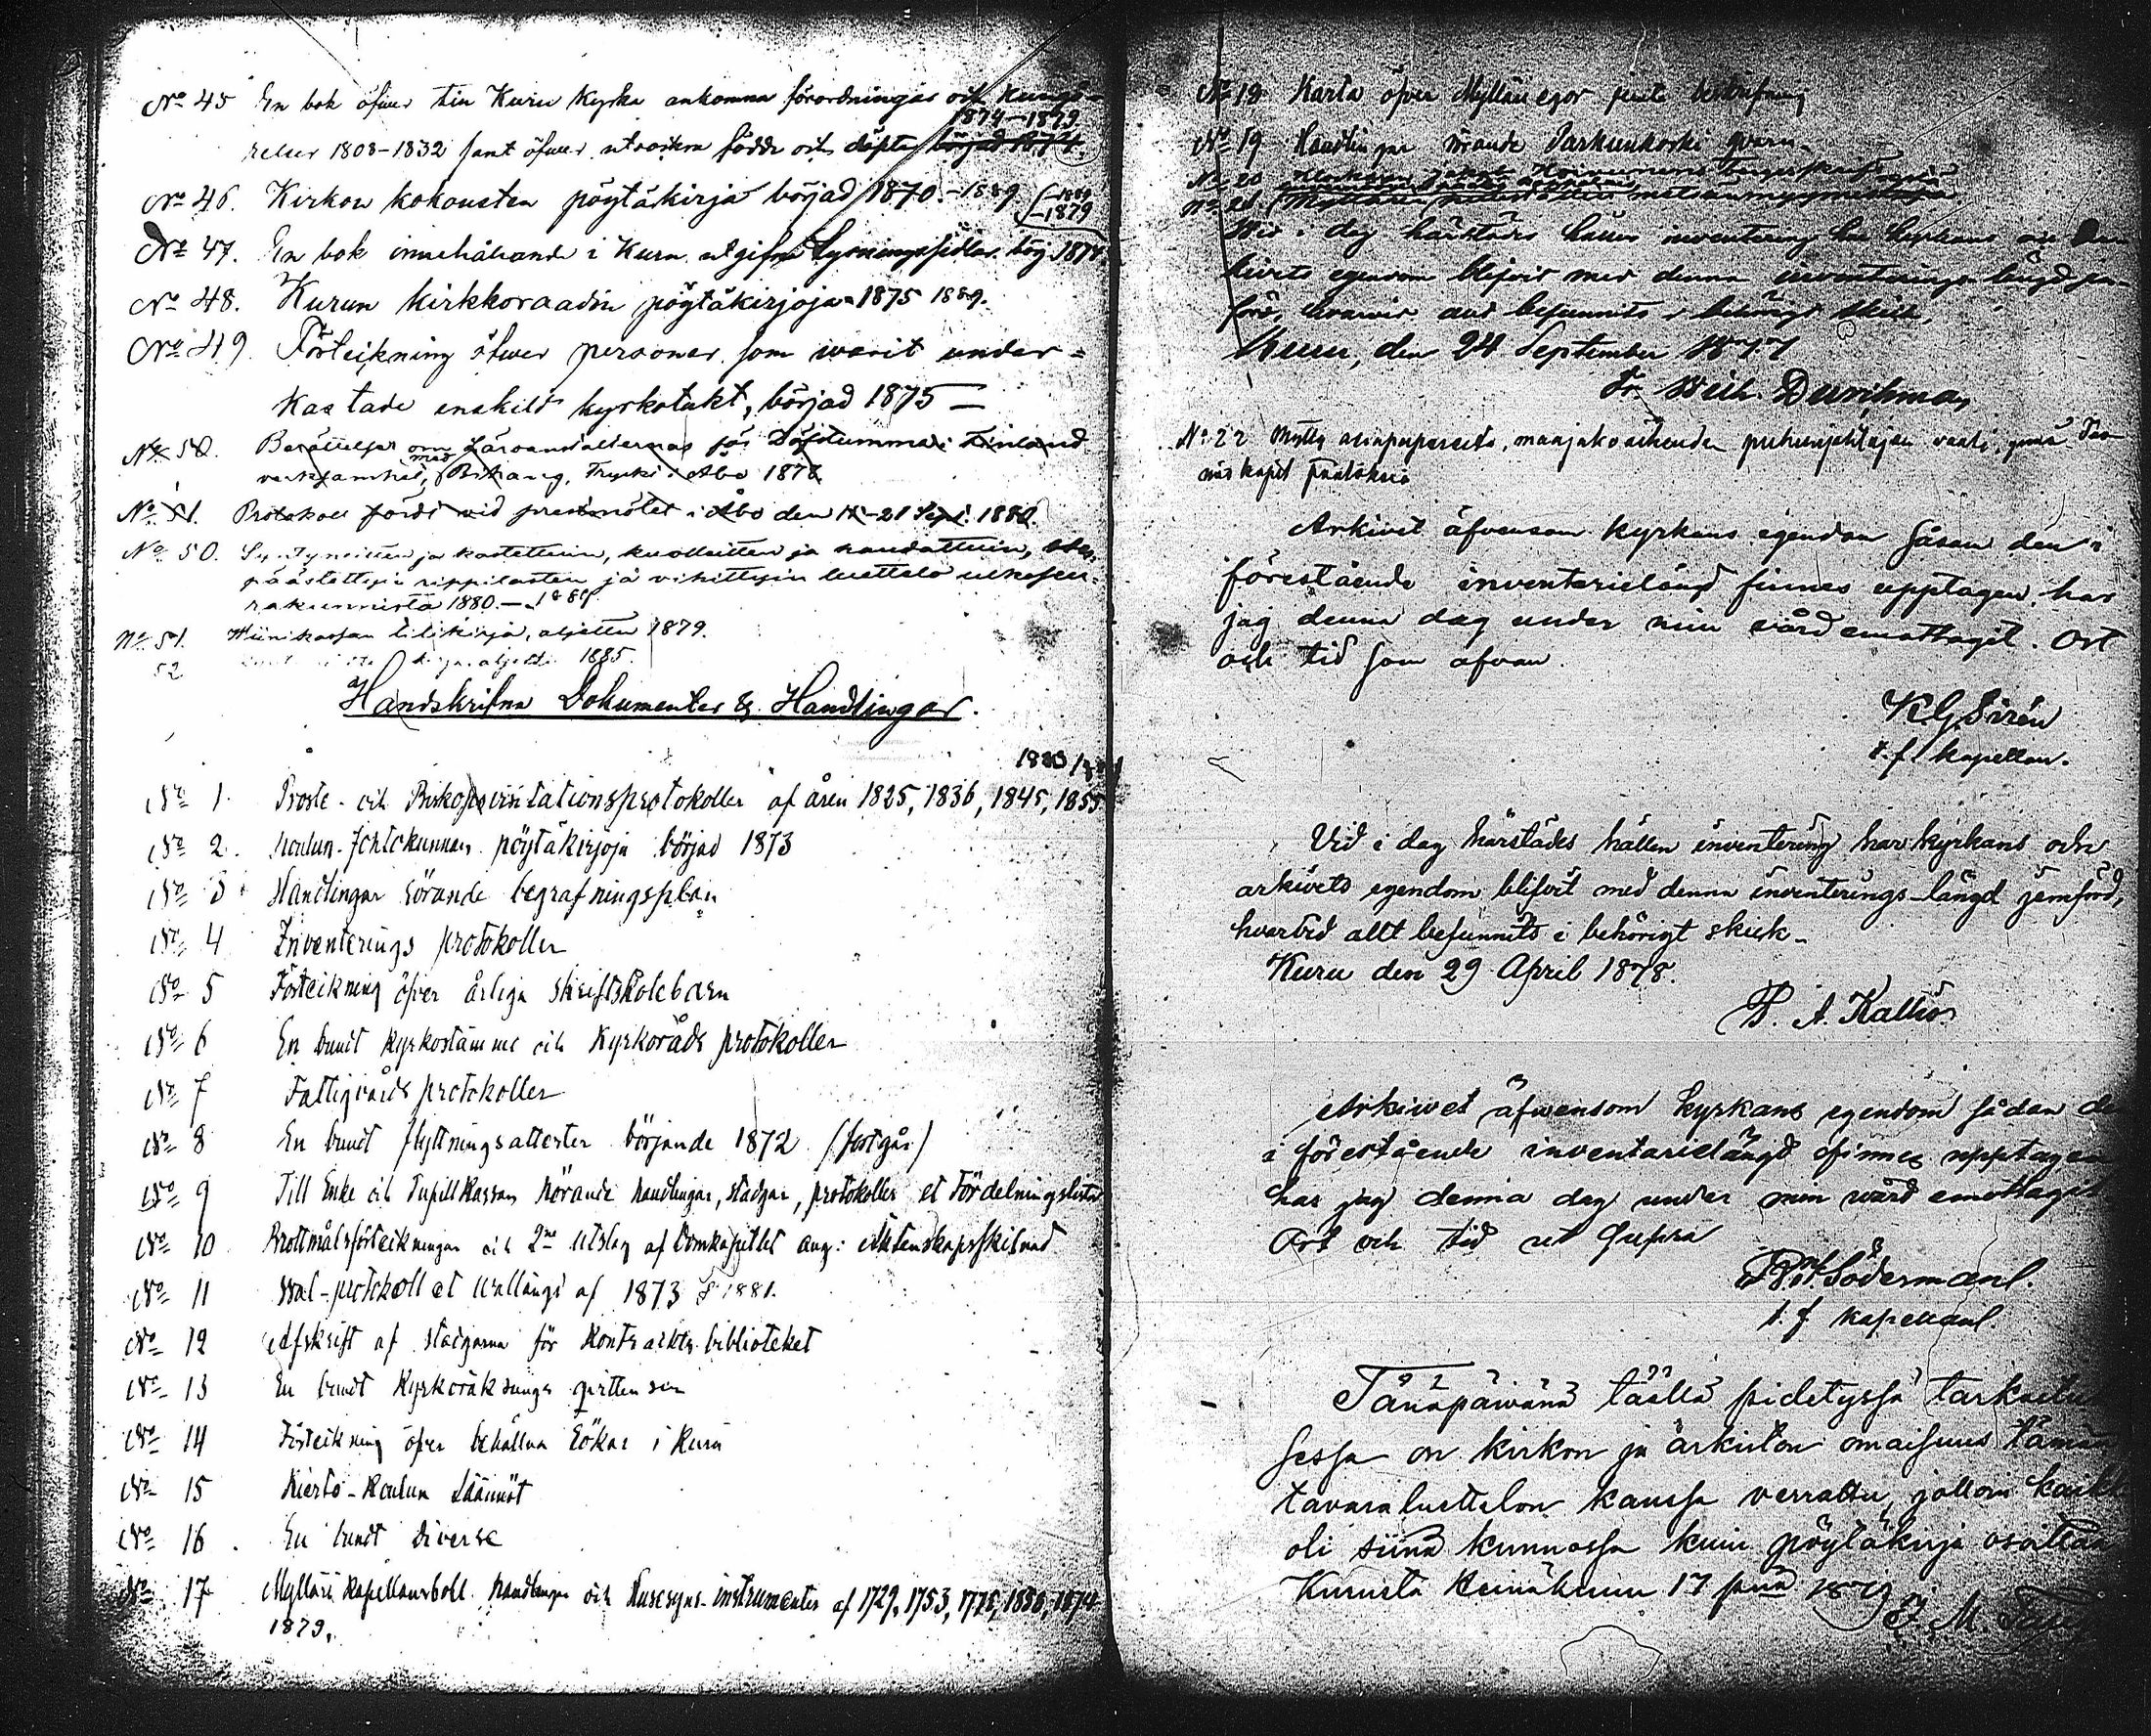 No 45 En bok öfwer till Kuru Kyrka ankomna förordningar och kungö-
1874-1879
relser 1808-1832 samt öfwer utsocknes födde och döpte börjad 1874.
No 46. Kirkon kokousten pöytäkirja börjad 1870.-1889
-1879
No 47. En bok innehållande i Kuru utgifna Lysningssedlar. beg. 1874
No 48. Kurun kirkkoraadin pöytäkirjoja 1875 1889.
No 49. Förteikning öfwer personer som warit under-
kastade enskild kyrkotukt, börjad 1875 —
No 50. Berättelser om Läroanstalternas för Döfstumma i Finland
verksamhet, med Bihang, Tryckt i Åbo 1878
No 51. Protokoll fördt vid prestmötet i Åbo den 14-21 Sept. 1880.
No 50. Syntyneitten ja kastettuin, kuolleitten ja haudattuin,
päästettyin rippilasten ja vihittyin luettelo ulkoseu-
rakunnista 1880.—1889
No 51. Viinikassan tilikirja, aljettu 1879.
52 aljettu 1885.
Handskrifna Dokumenter & Handlingar.
1883
No 1. Proste- och Biskopsvisitationsprotokoller af åren 1825, 1836, 1845, 1855
No 2. Koulun-Johtokunnan pöytäkirjoja börjad 1873
No 3 Handlingar rörande begrafningsplan
No 4 Inventerings protokoller
No 5 Förteikning öfver årliga skriftskolebarn
No 6 En bundt Kyrkostämme och Kyrkoråds protokoller
No 7 Fattigvårds protokoller
No 8 En bundt flyttningsattester började 1872 (fortgår)
No 9 Till Enke och Pupillkassan hörande handlingar, stadgar, protokoller et Fördelningslistor
No 10 Brottmålsförteikningar och 2ne Utslag af Domkapitlet ang: äktenskapsskilnad
No 11 Wal-protokoll et Wallängd af 1873 & 1881.
No 12 Afskrift af stadgarna för Kontraktsbiblioteket
No 13 En bundt Kyrkoräknings qvittenser
No 14 Förteikning öfver behållna Rökar i Kuru
No 15 Kierto-Koulun Säännöt
No 16. En bundt diverse
No 17 Mylläri Kapellansboll handlingar och Husesyns-instrumenter af 1729, 1753, 1778, 1856, 1874
1879.
No 18 Karta öfver Mylläri egor jemte beskrifning
No 19 Handlingar rörande Parkunkoski qvarn
No 20 Klockaren
No 21 Myllärin
Wid i dag härstädes hållen inventering har kyrkans och
kivets egendom blifvit med denna inventerings längd jem-
förd, hvarvid allt befunnits i behörigt skick.
Kuru, den 24 September 1877
Fr. Wilh. Durchman
No 22
Arkivet äfvensom kyrkans egendom sådan den i
förestående inventarielängd finnes upptagen, har
jag denna dag under min vård emottagit. Ort
och tid som ofvan.
K G Sirén
t. f. kapellan.
Vid i dag härstädes hållen inventering har kyrkans och
arkivets egendom blifvit med denna inventerings-längd jemförd,
hvarvid allt befunnits i behörigt skick.
Kuru den 29 April 1878.
A. Kallio
Arkivet äfvensom kyrkans egendom sådan den
i förestående inventarielängd finnes upptagen
har jag denna dag under min vård emottagit
Ort och tid ut supra
Söderman.
t. f. kapellan
Tänäpäivänä täällä pidetyssä tarkastuk
sessa on kirkon ja arkiston omaisuus tämän
tavaraluettelon kanssa verrattu, jolloin kaikki
oli siinä kunnossa kuin pöytäkirja osoittaa
Kurusta Heinäkuun 17 pnä 1879